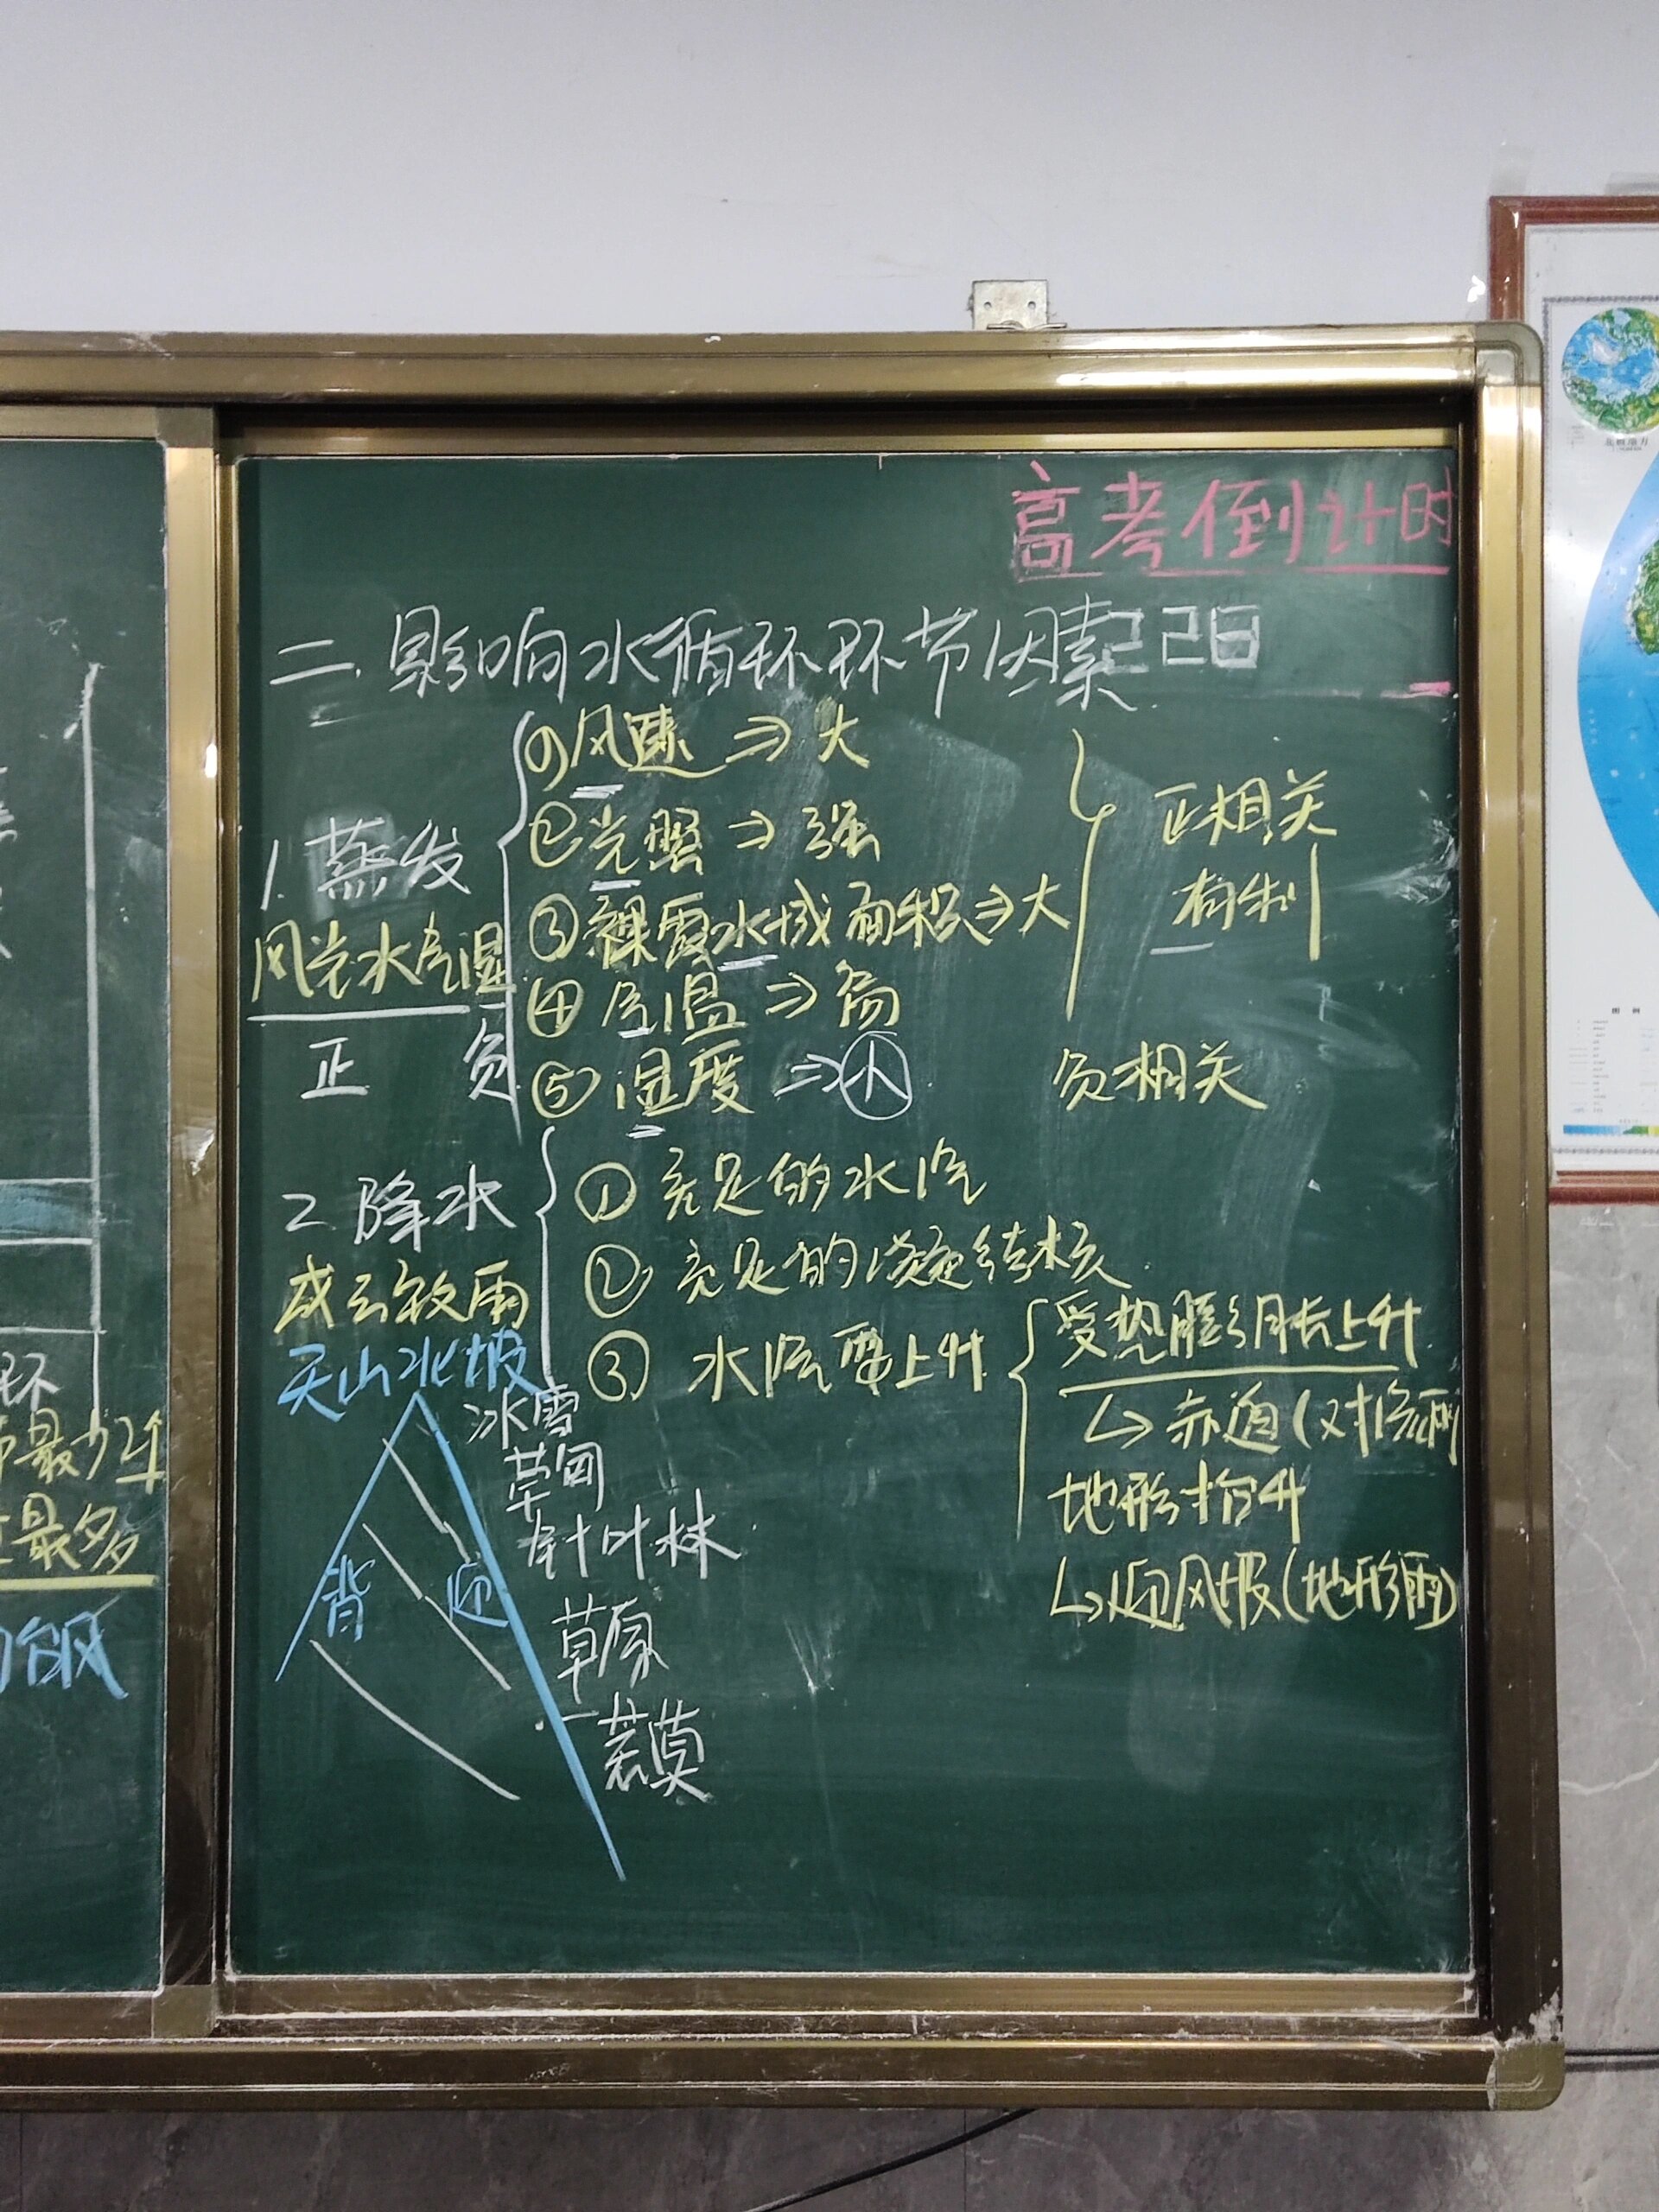 高考倒计时
二. 影响水循环环节因素
1. 蒸发
风光水气湿
正 负
① 风速 ⇒ 大
② 光照 ⇒ 强
③ 裸露水域面积 ⇒ 大
④ 气温 ⇒ 高
⑤ 湿度 ⇒ 小
正相关
有利
负相关
2. 降水
成云致雨
① 充足的水汽
② 充足的凝结核
③ 水汽要上升
受热膨胀上升
↳ 赤道(对流雨
地形抬升
↳ 迎风坡(地形雨)
天山北坡
背 迎
冰雪
草甸
针叶林
草原
荒漠
环
最少
最多
台风
图例